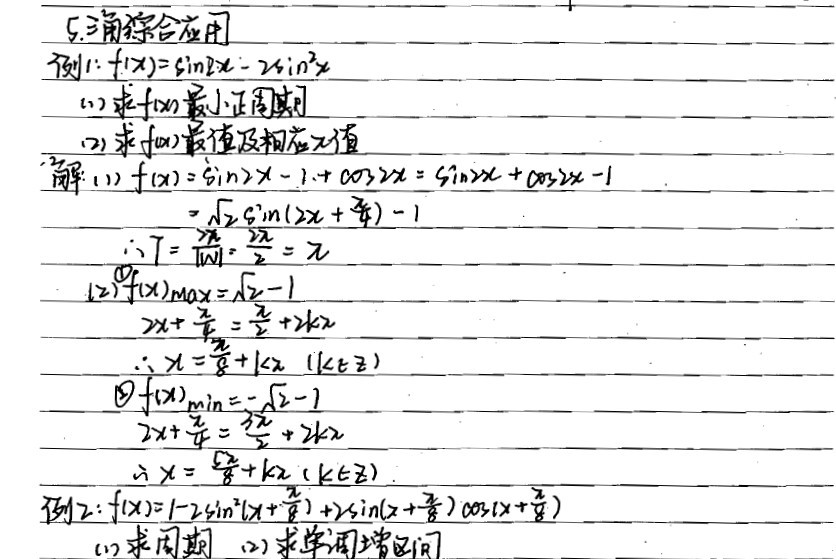 5.三角综合应用
例1: f(x)=sin2x-2sin²x
(1) 求f(x)最小正周期
(2) 求f(x)最值及相应x值
解:(1) f(x)=sin2x-1+cos2x=sin2x+cos2x-1
=√2sin(2x+π/4)-1
∴T=2π/|W|=2π/2=π
(2)①f(x)max=√2-1
2x+π/4=π/2+2kπ
∴x=π/8+kπ (k∈Z)
②f(x)min=-√2-1
2x+π/4=3π/2+2kπ
∴x=5π/8+kπ (k∈Z)
例2: f(x)=1-2sin²(x+π/8)+2sin(x+π/8)cos(x+π/8)
(1) 求周期 (2) 求单调增区间